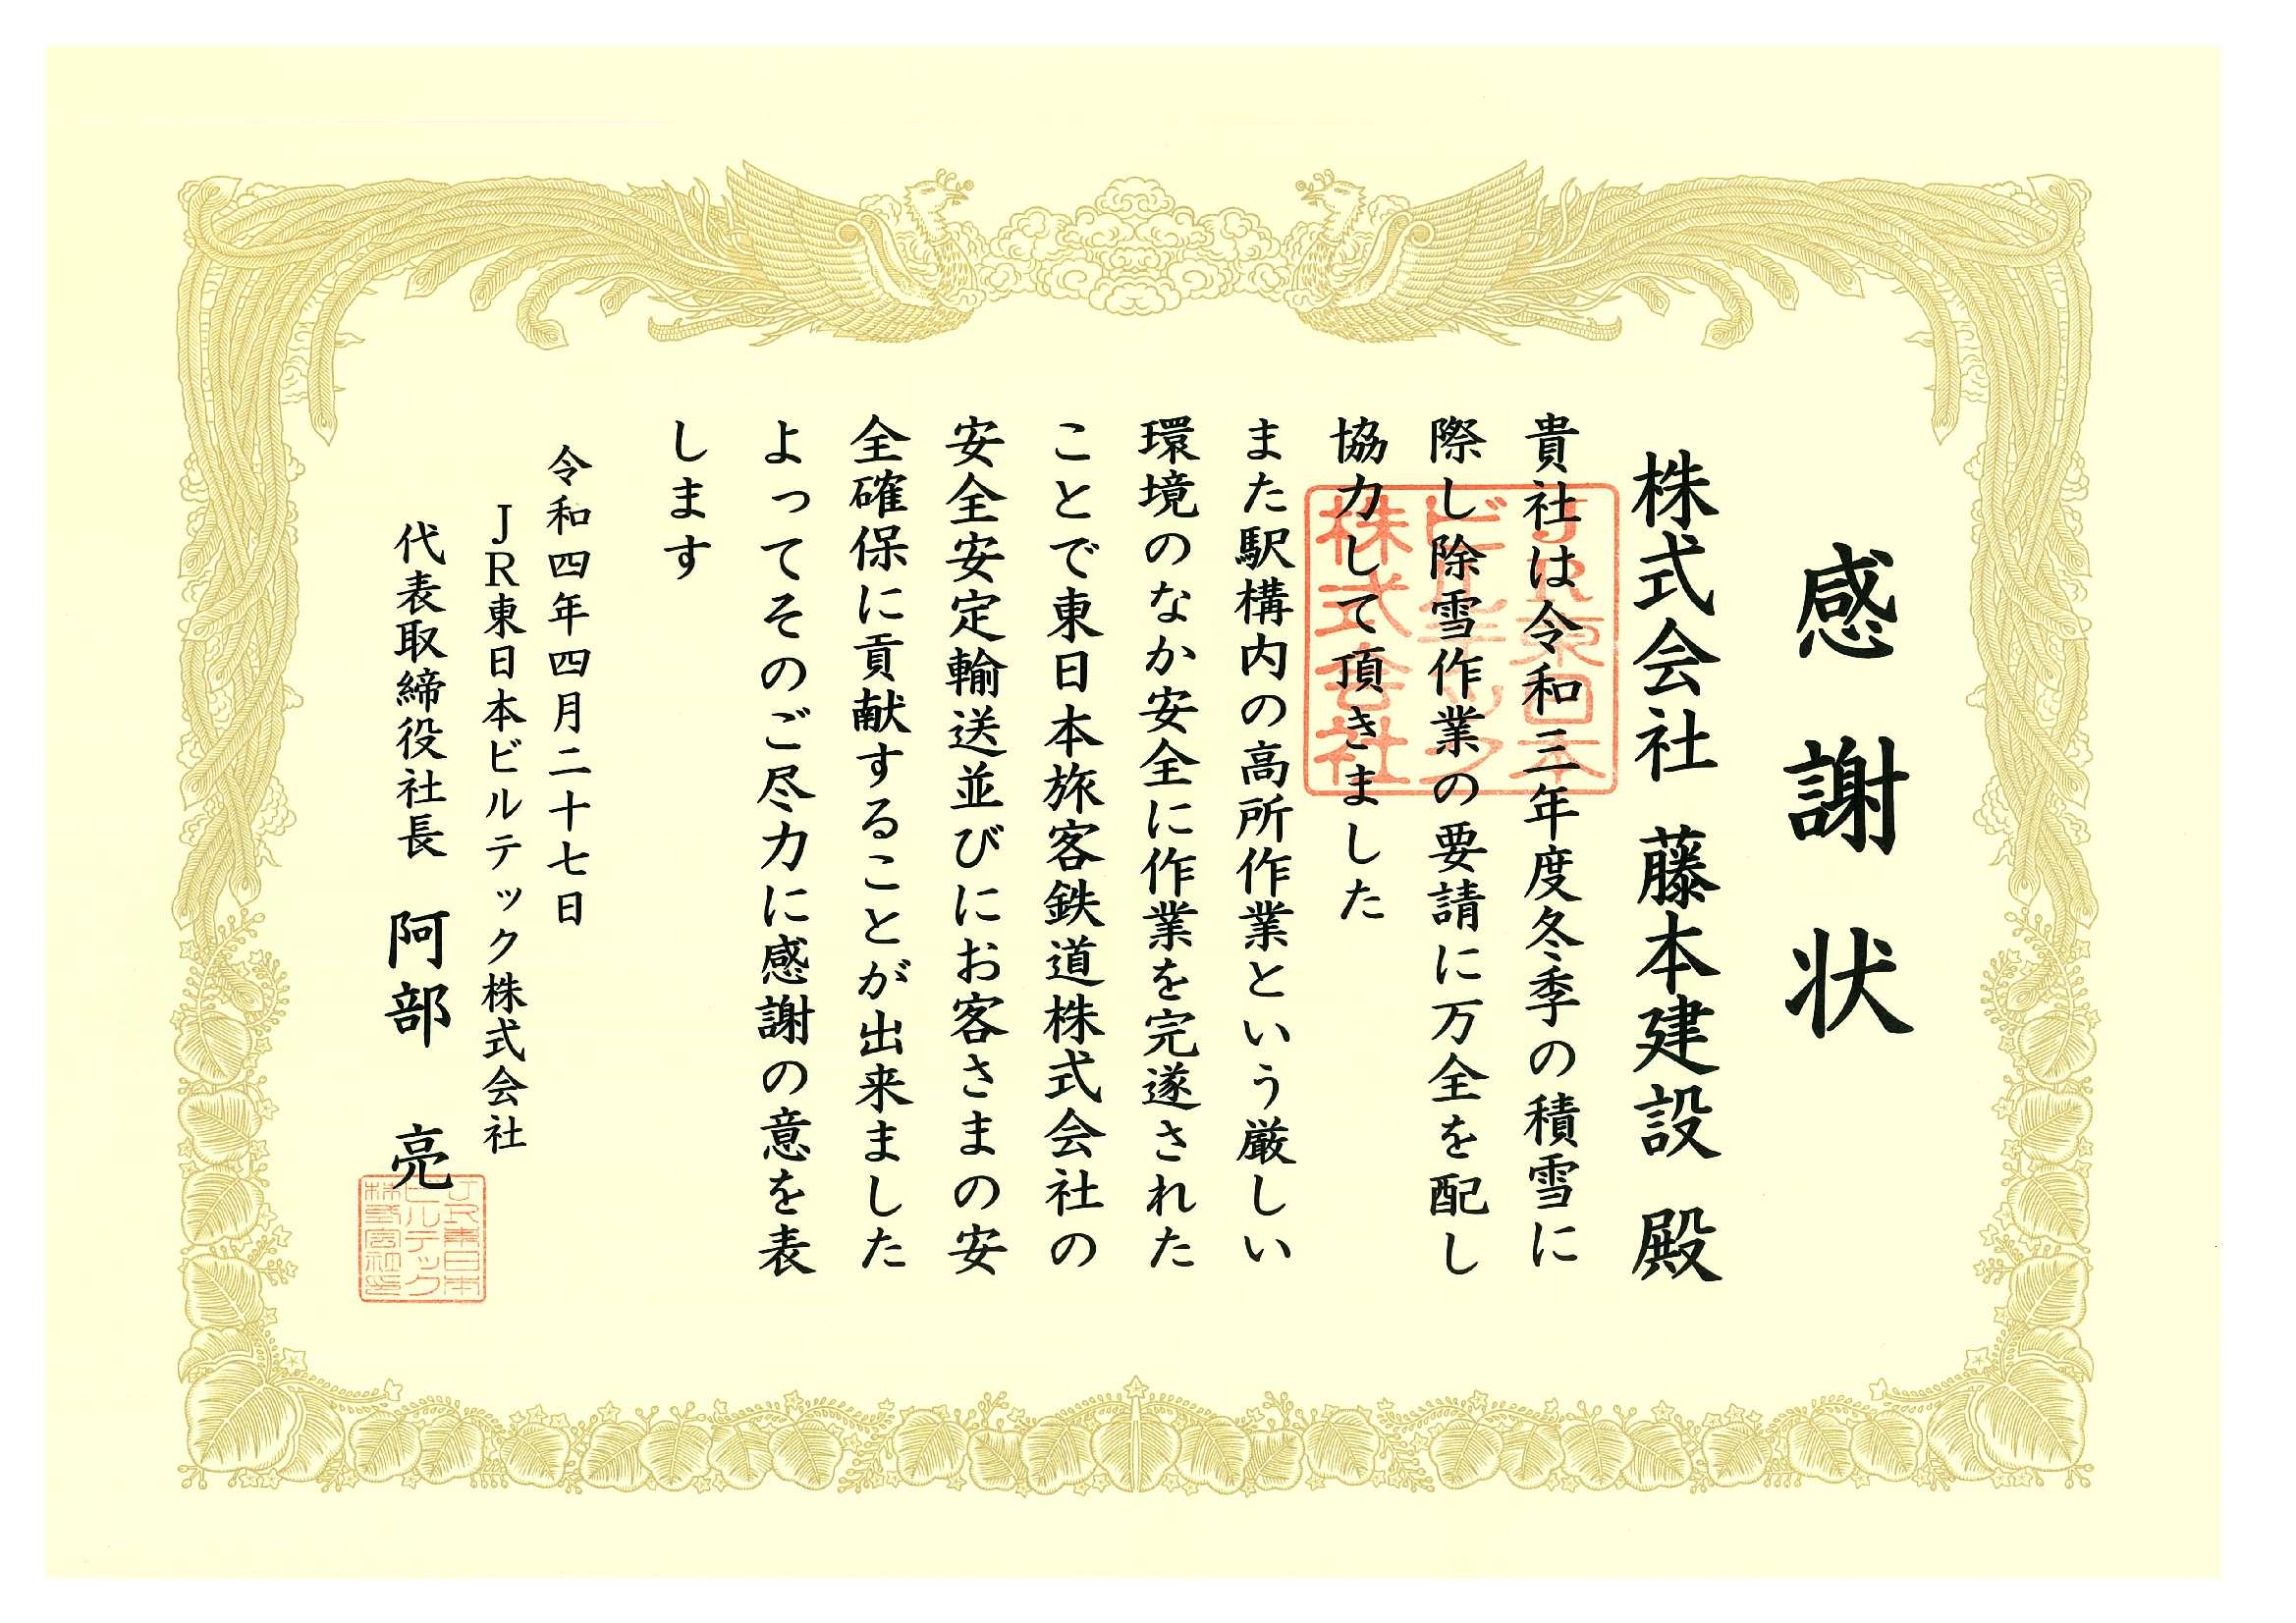 感謝状
株式会社 藤本建設 殿
貴社は令和三年度冬季の積雪に
際し除雪作業の要請に万全を配し
協力して頂きました
また駅構内の高所作業という厳しい
環境のなか安全に作業を完遂された
ことで東日本旅客鉄道株式会社の
安全安定輸送並びにお客さまの安
全確保に貢献することが出来ました
よってそのご尽力に感謝の意を表
します
令和四年四月二十七日
JR東日本ビルテック株式会社
代表取締役社長 阿部 亮
JR東日本
ビルテック
株式会社
JR東日本
ビルテック
株式会社印